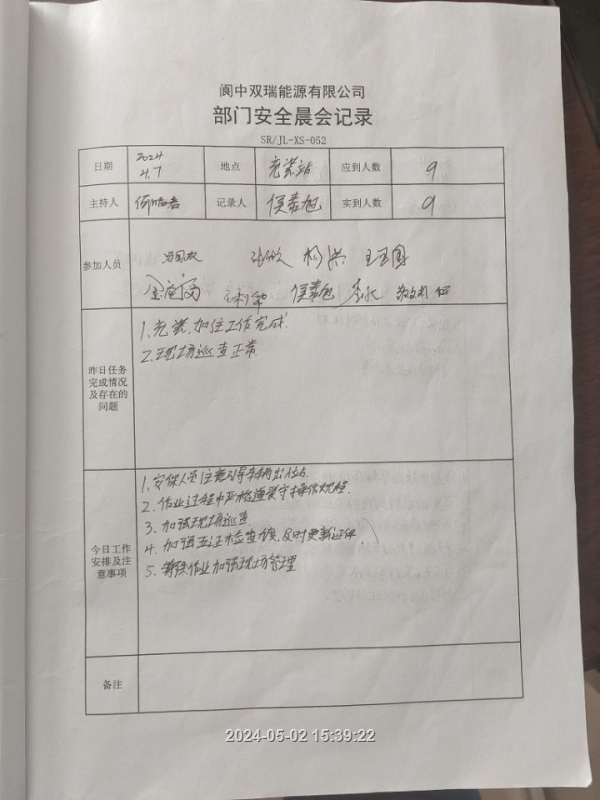 阆中双瑞能源有限公司
部门安全晨会记录
SR/JL-XS-052
日期 2024 4.7 地点 充装站 应到人数 9
主持人 记录人 侯春旭 实到人数 9
参加人员
侯春旭
昨日任务完成情况及存在的问题
1、充装、加注工作完成.
2、现场巡查正常
今日工作安排及注意事项
1、安保人员注意引导车辆出入站
2、作业过程中严格遵守操作规程.
3、加强现场巡查
4、加强五证检查,及时更新证件
5、作业加强现场管理
备注
2024-05-02 15:39:22